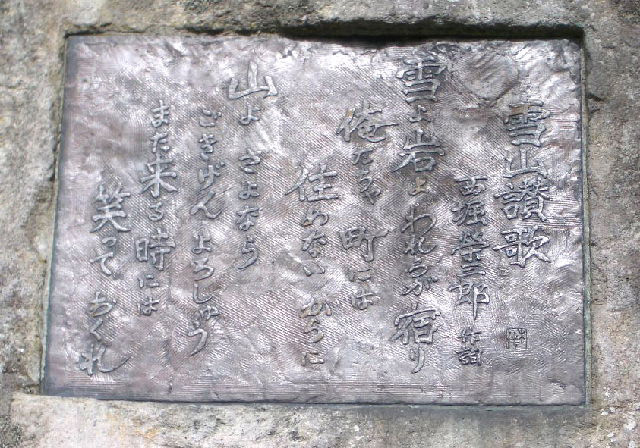 雪山讃歌
西堀榮三郎 作詞
雪よ岩よ われらが宿り
俺たちゃ 町には
住めないからに
山よ さよなら
ごきげんよろしゅう
また来る時には
笑っておくれ